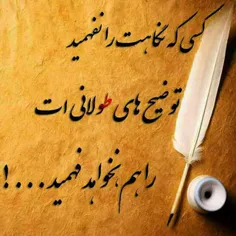 کسی که نگاهت را نفهمید
توضیح های طولانی ات
را هم نخواهد فهمید....!